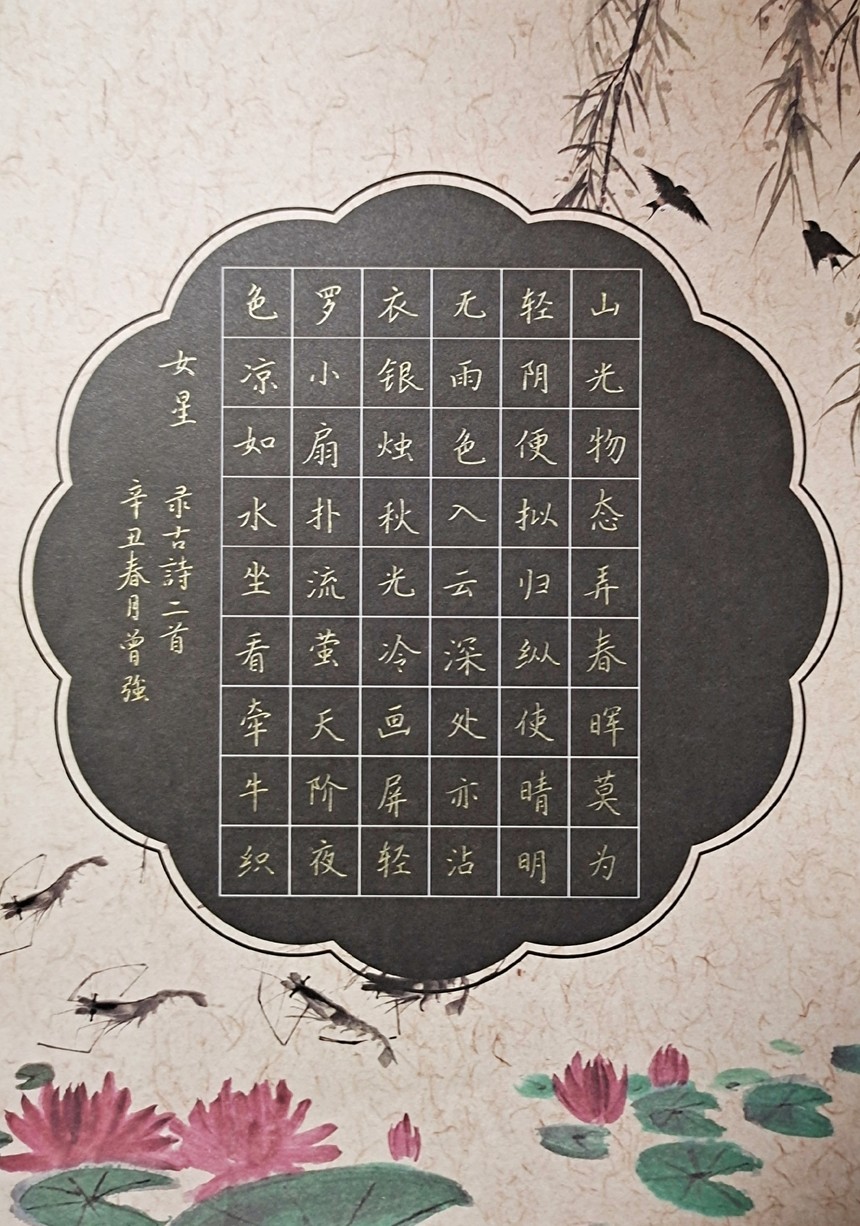 山光物态弄春晖莫为
轻阴便拟归纵使晴明
无雨色入云深处亦沾
衣银烛秋光冷画屏轻
罗小扇扑流萤天阶夜
色凉如水坐看牵牛织
女星 录古詩二首
辛丑春月曾強